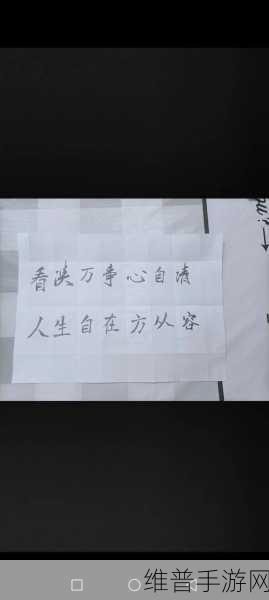 看淡万事心自清
人生自在方从容
维普手游网